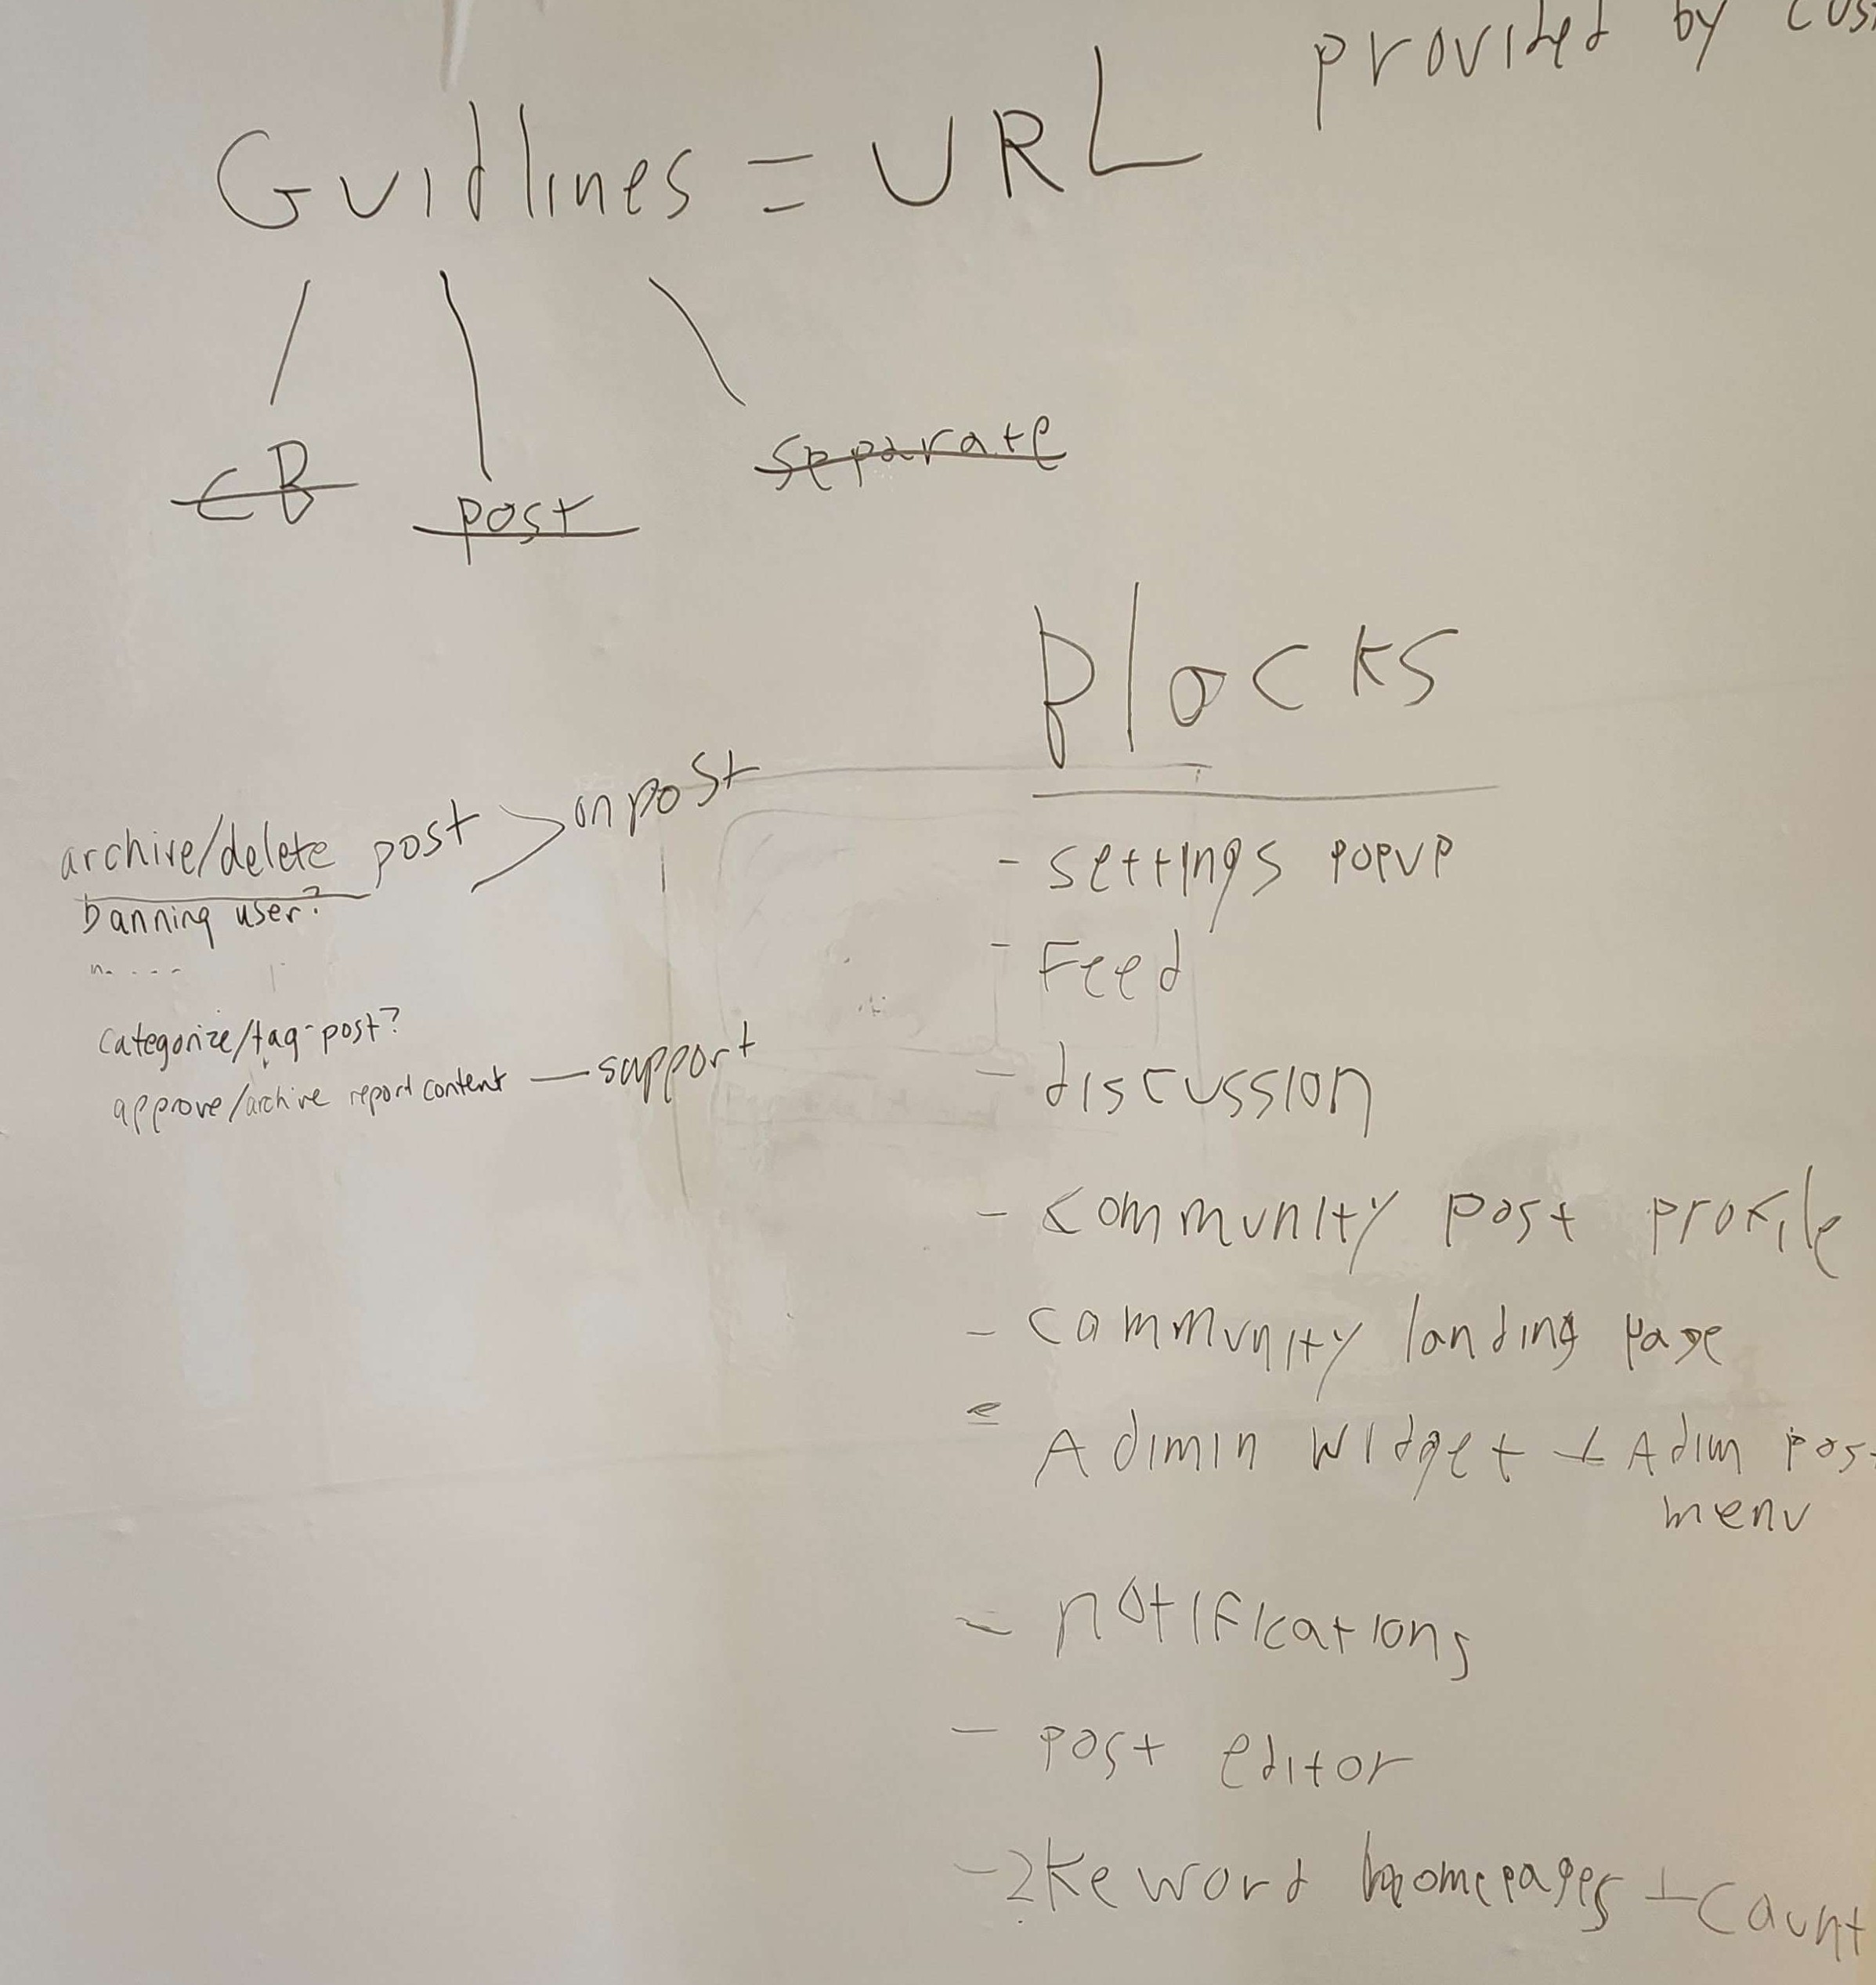 provided by cus
Guidlines = URL
CB
post
separate
Blocks
archive/delete post
on post
banning user?
categorize/tag-post?
approve/archive report content — support
- settings popup
- Feed
- discussion
- community post profile
- community landing page
- Adimin widget + Adim pos
menu
- notifications
- post editor
- 2 Keword homepages + Count